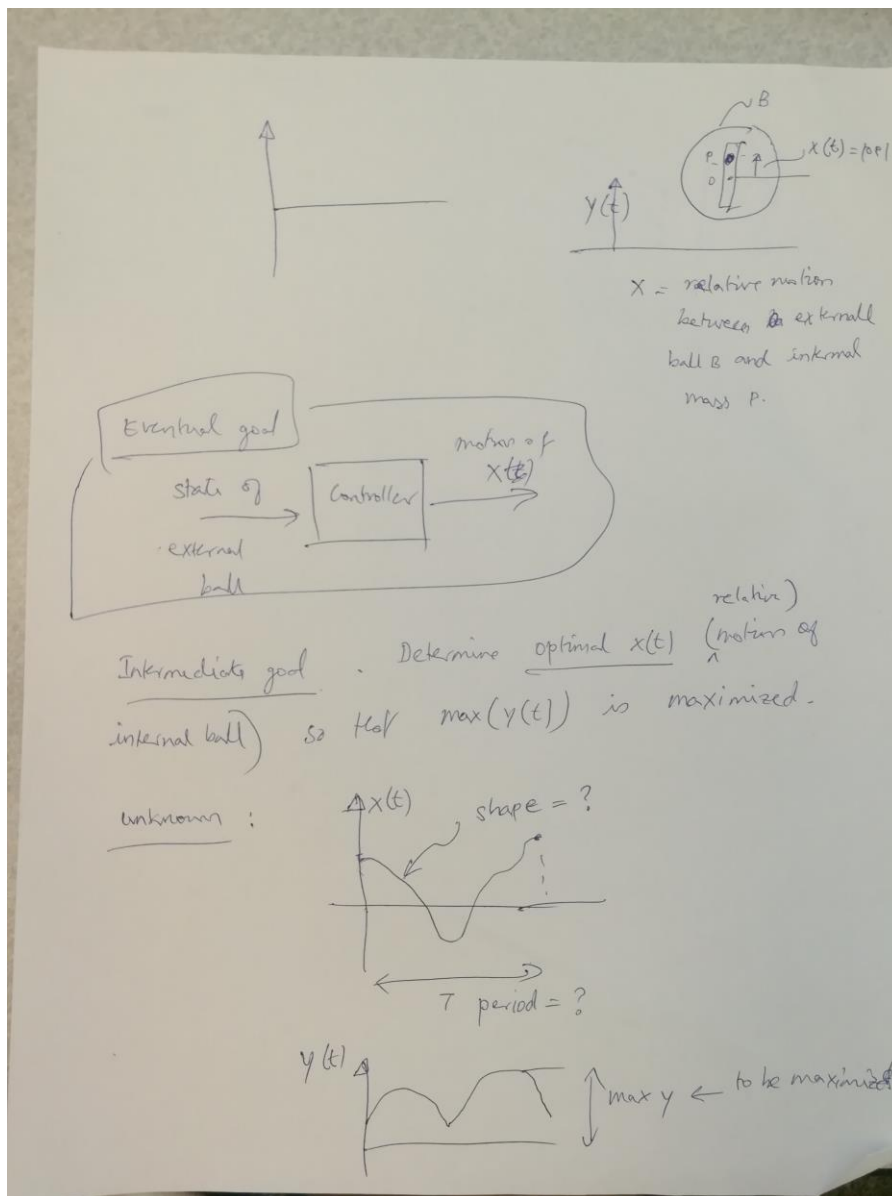 B
P
O
x(t) = |OP|
y(t)
X = relative motion
between externall
ball B and internal
mass P.
Eventual goal
state of
external
ball
Controller
motion of
X(t)
Intermediate goal . Determine optimal x(t) (relative) motion of
internal ball) so that max(y(t)) is maximized.
unknown :
x(t)
shape = ?
T period = ?
y(t)
max y ← to be maximized